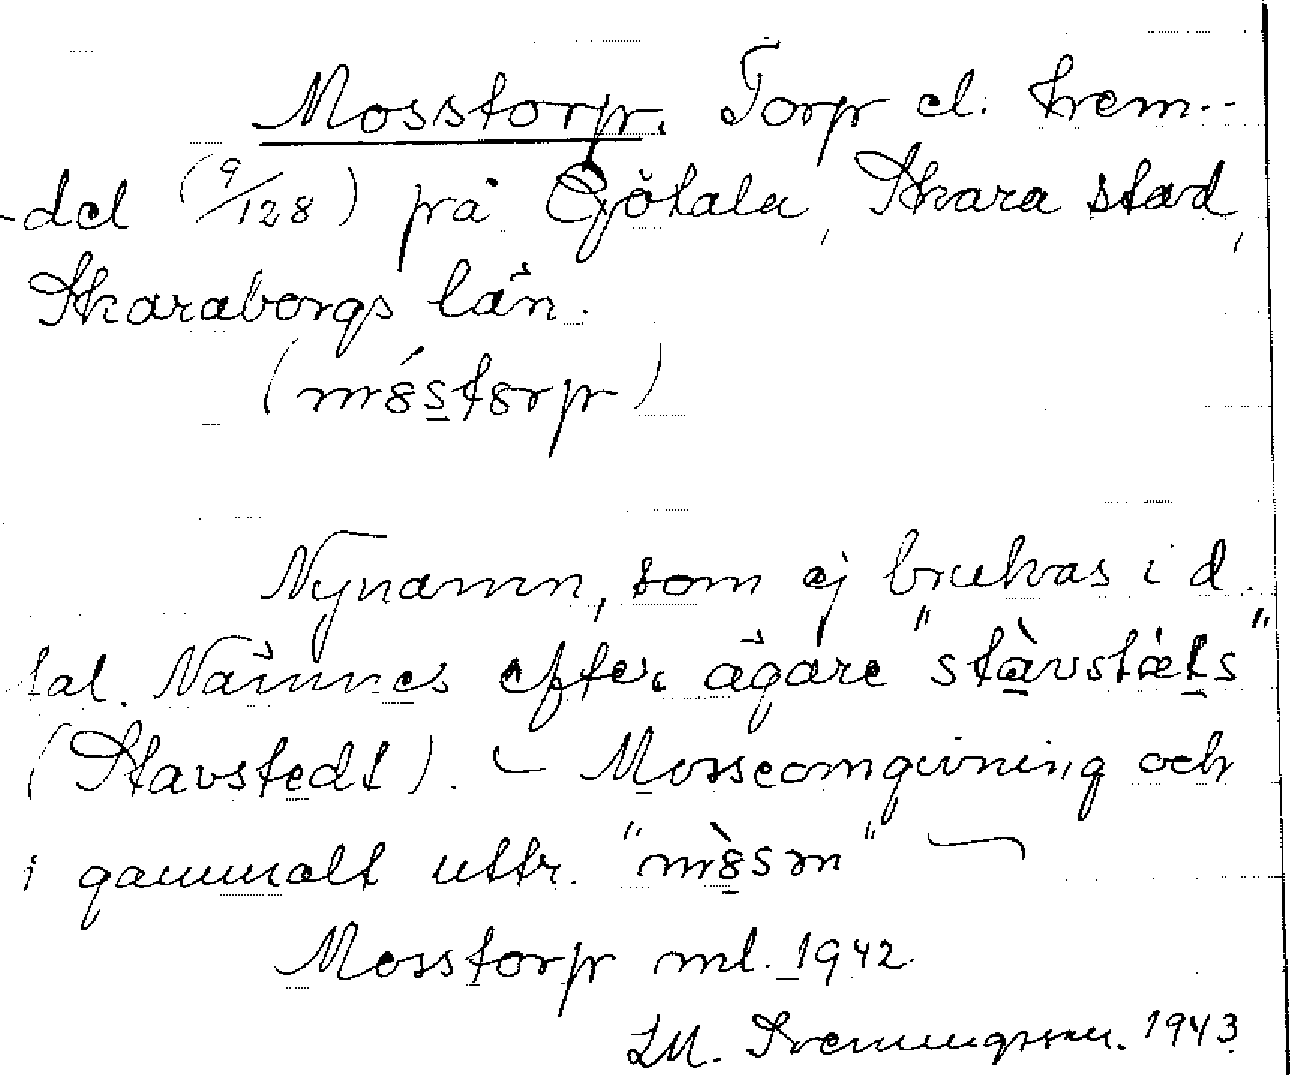 Mosstorp. Torp el. hem-
-del (9/128) på Götala, Skara stad,
Skaraborgs län.
(mósto̠rp)
Nynamn, som ej brukas i d.
tal. Nämnes efter ägare "stàvstäts"
(Stavstedt). – Mosseomgivning och
i gammalt uttr. "mòsən" –
Mosstorp ml. 1942.
1943